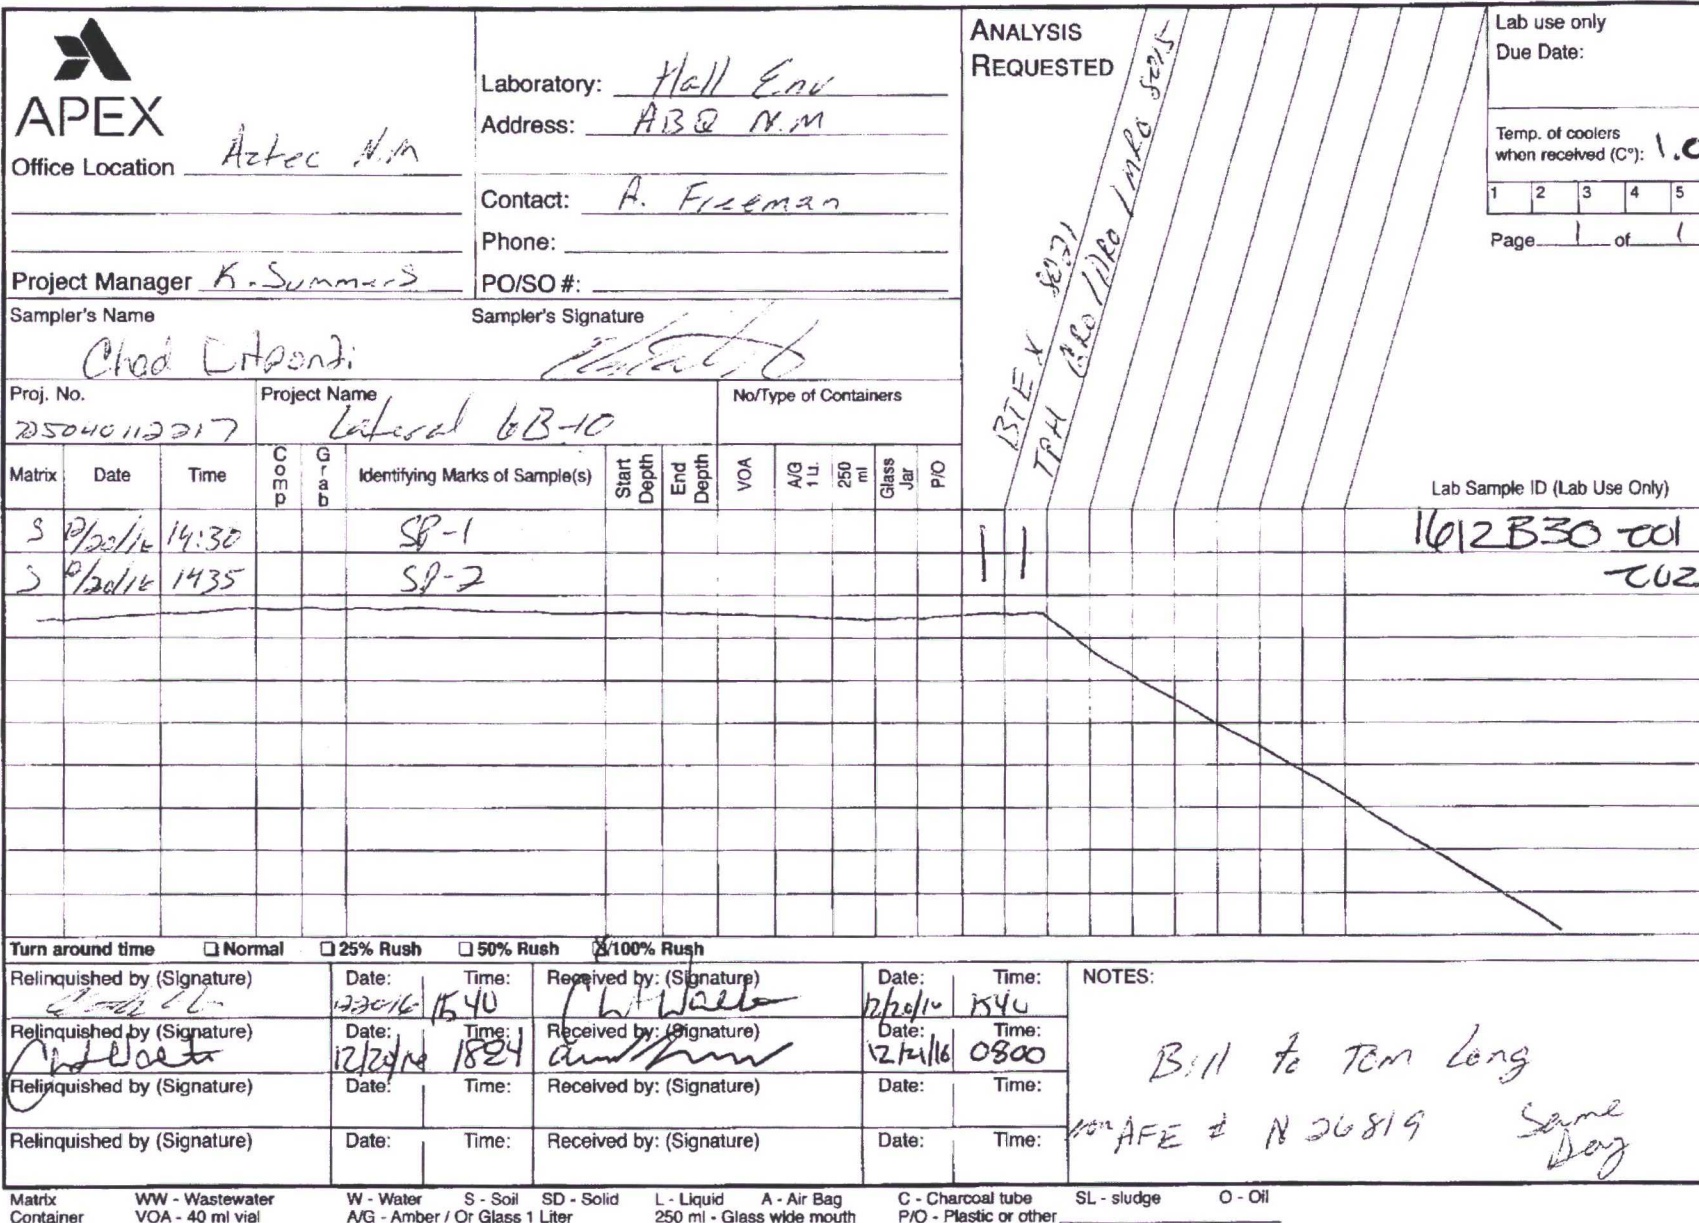 APEX
Office Location Aztec N.M
Project Manager K. Summers
Laboratory: Hall Env
Address: ABQ N.M
Contact: A. Freeman
Phone:
PO/SO #:
Sampler's Name
Chad
Sampler's Signature
ANALYSIS
REQUESTED
BTEX 8021
TPH GRO/DRO/MRO 8015
Lab use only
Due Date:
Temp. of coolers
when received (C°): 1.0
1 2 3 4 5
Page 1 of 1
Proj. No.
Project Name
Lateral 6B-10
No/Type of Containers
Matrix Date Time Comp Grab Identifying Marks of Sample(s) Start Depth End Depth VOA A/G 1 Lt. 250 ml Glass Jar P/O
Lab Sample ID (Lab Use Only)
S 12/20/16 14:30 SP-1 1 1 1612B30 -001
S 12/20/16 1435 SP-2 1 1 -002
Turn around time Normal 25% Rush 50% Rush 100% Rush
Relinquished by (Signature) Date: Time: Received by: (Signature) Date: Time:
122016 1540 12/20/16 1540
Relinquished by (Signature) Date: Time: Received by: (Signature) Date: Time:
12/20/16 1824 12/21/16 0800
Relinquished by (Signature) Date: Time: Received by: (Signature) Date: Time:
Relinquished by (Signature) Date: Time: Received by: (Signature) Date: Time:
NOTES:
Bill to Tom Long
AFE # N 26819
Same
Day
Matrix WW - Wastewater W - Water S - Soil SD - Solid L - Liquid A - Air Bag C - Charcoal tube SL - sludge O - Oil
Container VOA - 40 ml vial A/G - Amber / Or Glass 1 Liter 250 ml - Glass wide mouth P/O - Plastic or other